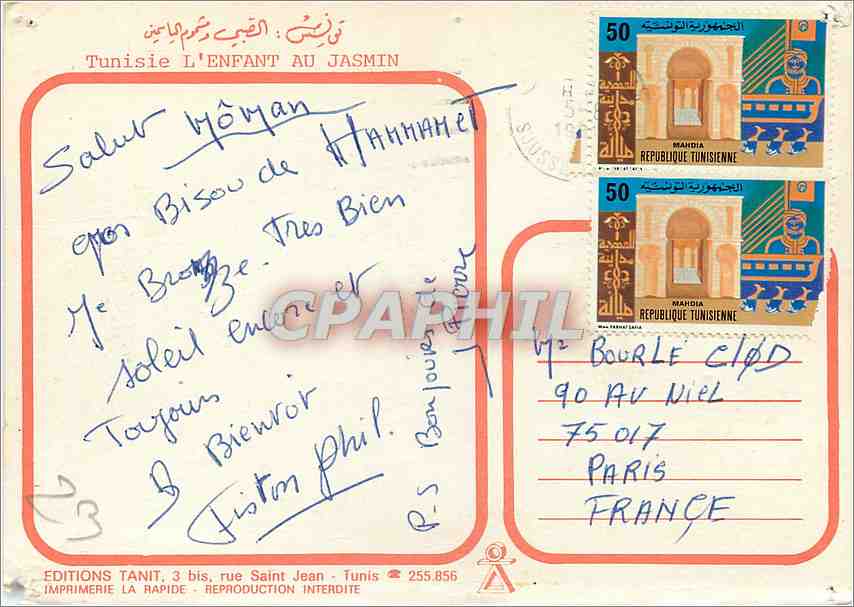 تونس : الصبي ومشموم الياسمين
Tunisie L'ENFANT AU JASMIN
Salut Môman
gros Bisou de HAMMAMET
Je Bronze. Tres Bien
soleil encore et
Toujours
A Bientot
Fiston Phil.
P-S Bonjours de
CPAPHIL
50
الجمهورية التونسية
MAHDIA
REPUBLIQUE TUNISIENNE
50
الجمهورية التونسية
MAHDIA
REPUBLIQUE TUNISIENNE
SOUSSE
Mr BOURLE CLØD
90 AV NIEL
75017
PARIS
FRANCE
23
EDITIONS TANIT, 3 bis, rue Saint Jean - Tunis ☎ 255.856
IMPRIMERIE LA RAPIDE - REPRODUCTION INTERDITE